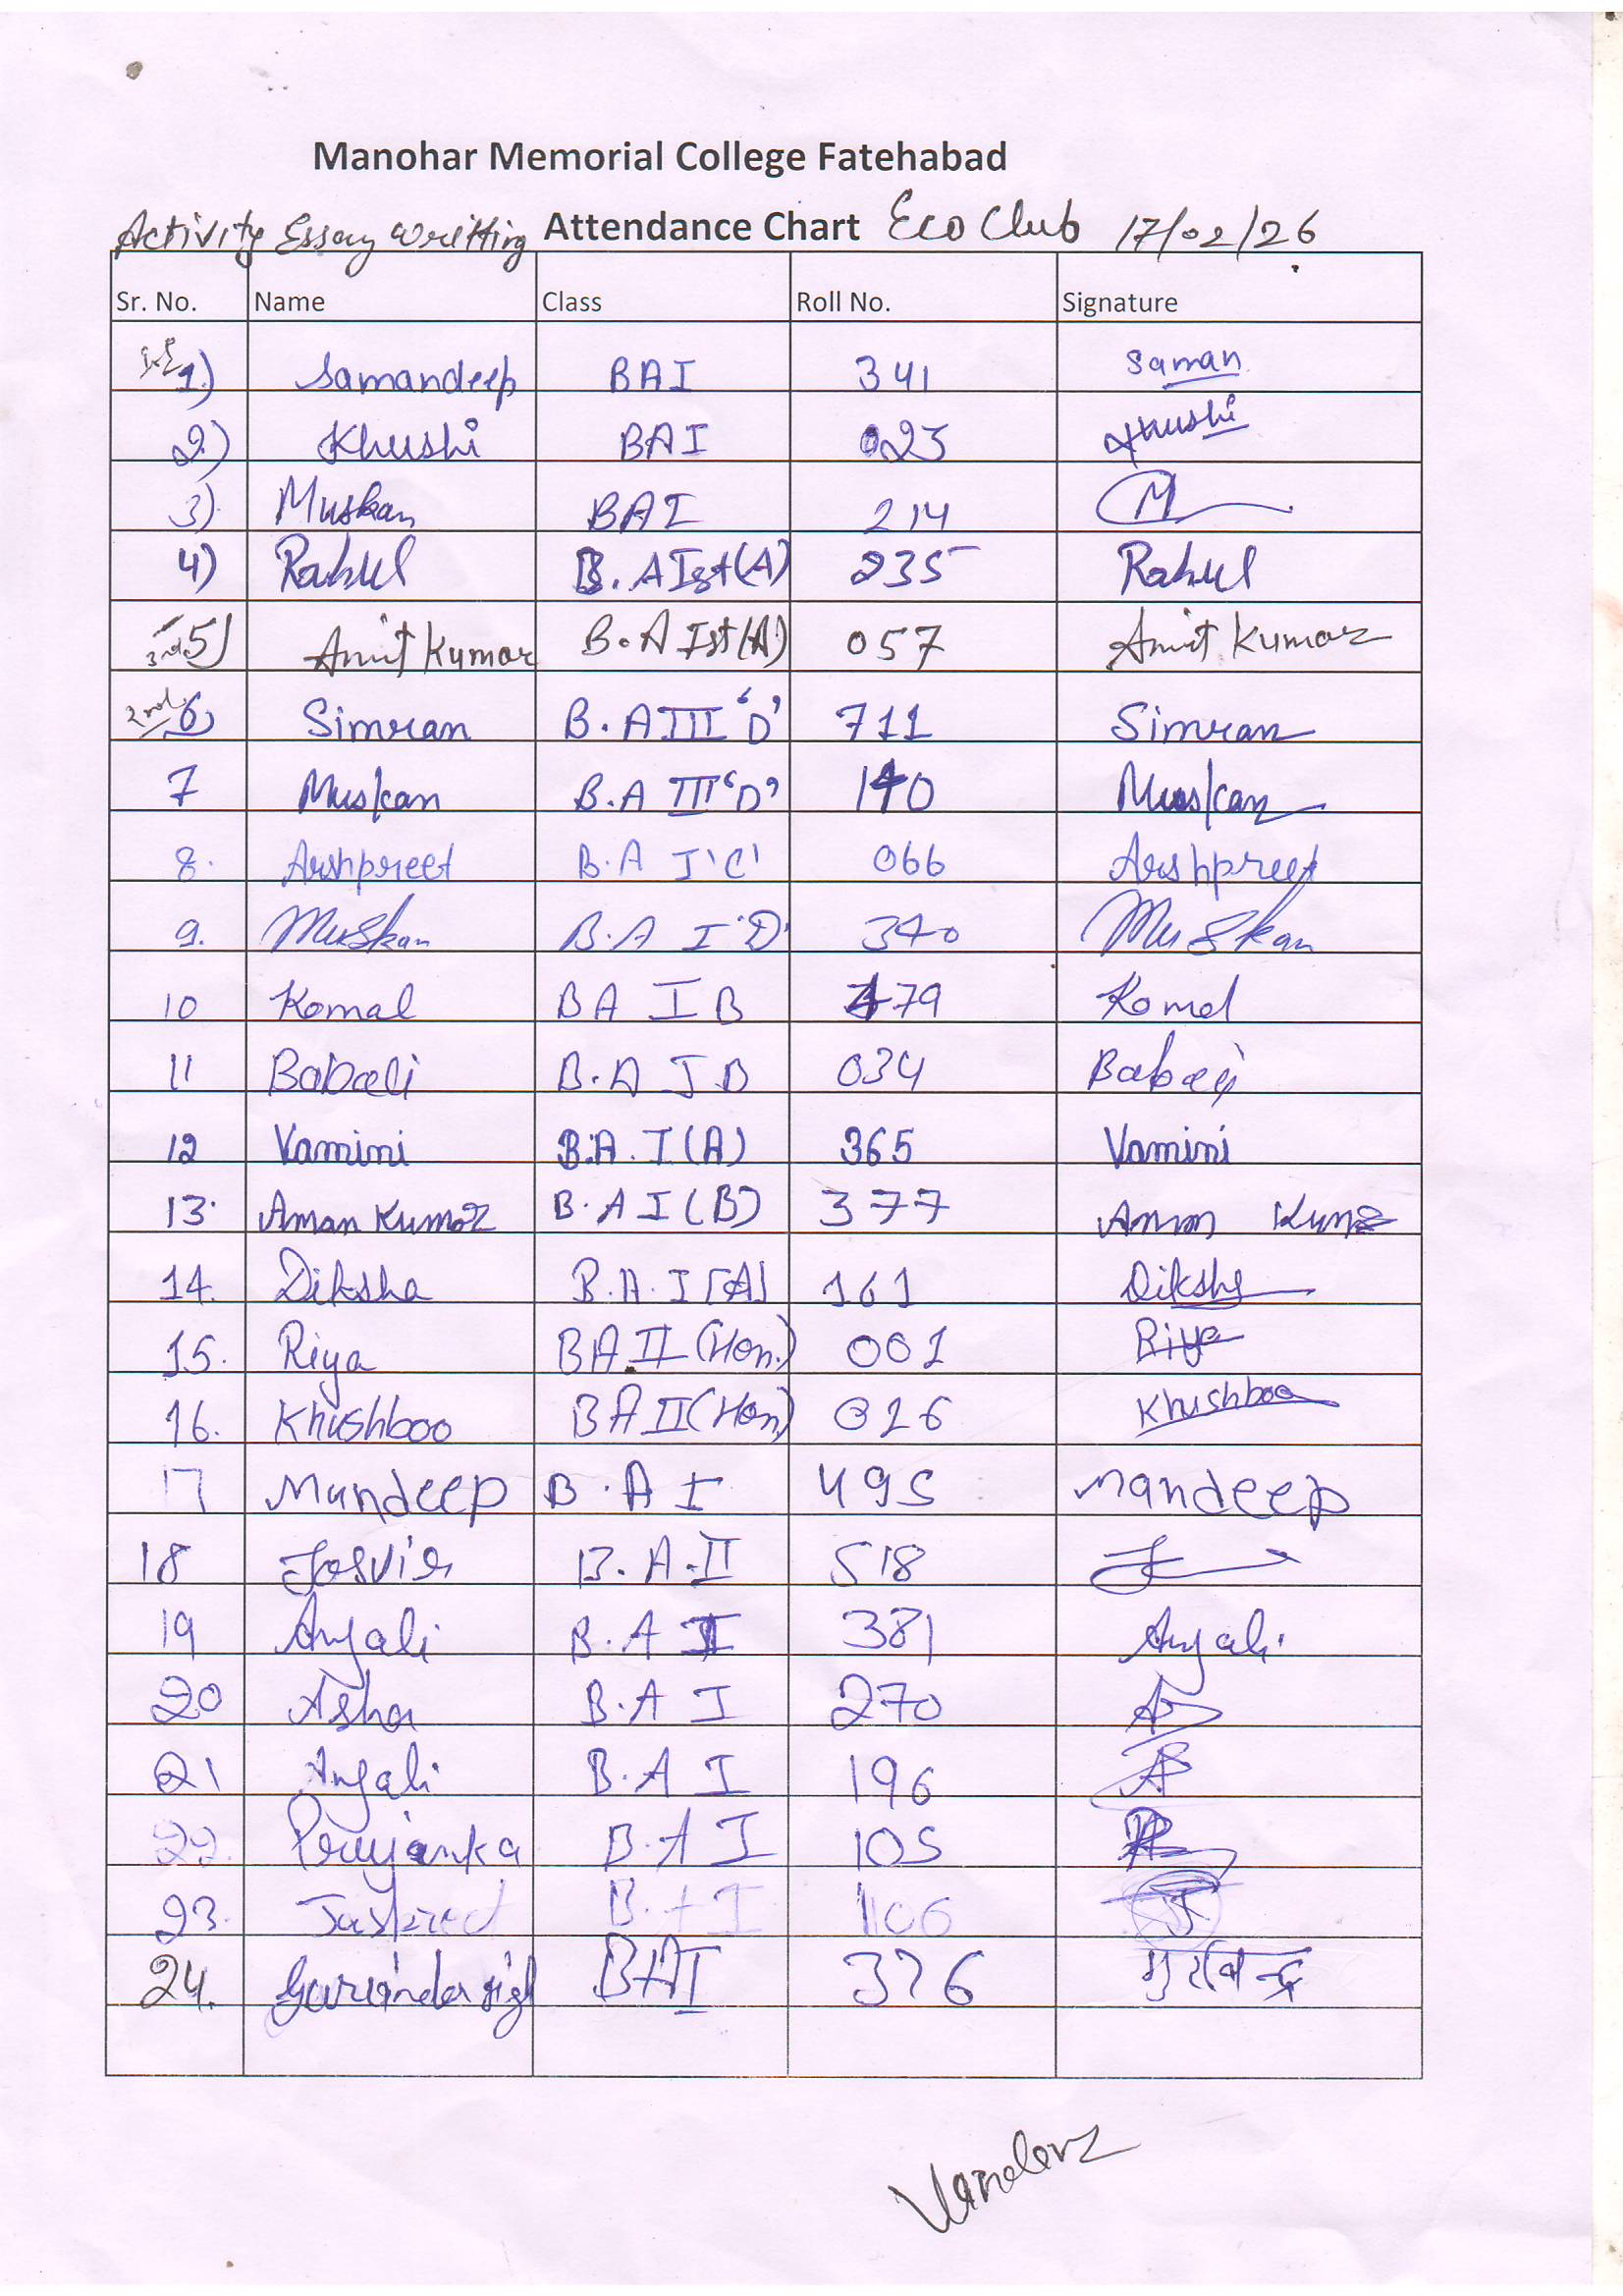 Manohar Memorial College Fatehabad
Activity Essay Writting Attendance Chart Eco Club 17/02/26
Sr. No. Name Class Roll No. Signature
1st 1) Samandeep BA I 341 Saman
2) Khushi BA I 023 Khushi
3) Muskan BA I 214 M
4) Rahul B.A Ist (A) 235 Rahul
3rd 5) Amit Kumar B.A Ist (A) 057 Amit Kumar
2nd 6) Simran B.A III 'D' 711 Simran
7 Muskan B.A III 'D' 140 Muskan
8. Arshpreet B.A I 'C' 066 Arshpreet
9. Muskan B.A I 'D' 340 Muskan
10 Komal BA I B 479 Komal
11 Babali B.A I B 034 Babali
12 Vamini B.A. I (A) 365 Vamini
13. Aman Kumar B.A I (B) 377 Aman Kumar
14. Diksha B.A. I (A) 161 Diksha
15. Riya BA II (Hon.) 001 Riya
16. Khushboo BA II (Hon) 026 Khushboo
17 Mandeep B.A I 495 Mandeep
18 Jasvir B.A.II 518
19 Anjali B.A I 381 Anjali
20 Asha B.A I 270
21 Anjali B.A I 196
22. Priyanka B.A I 105
23. Jaspreet B.A I 1106
24. Gurvinder BA I 376 गुरविन्द्र